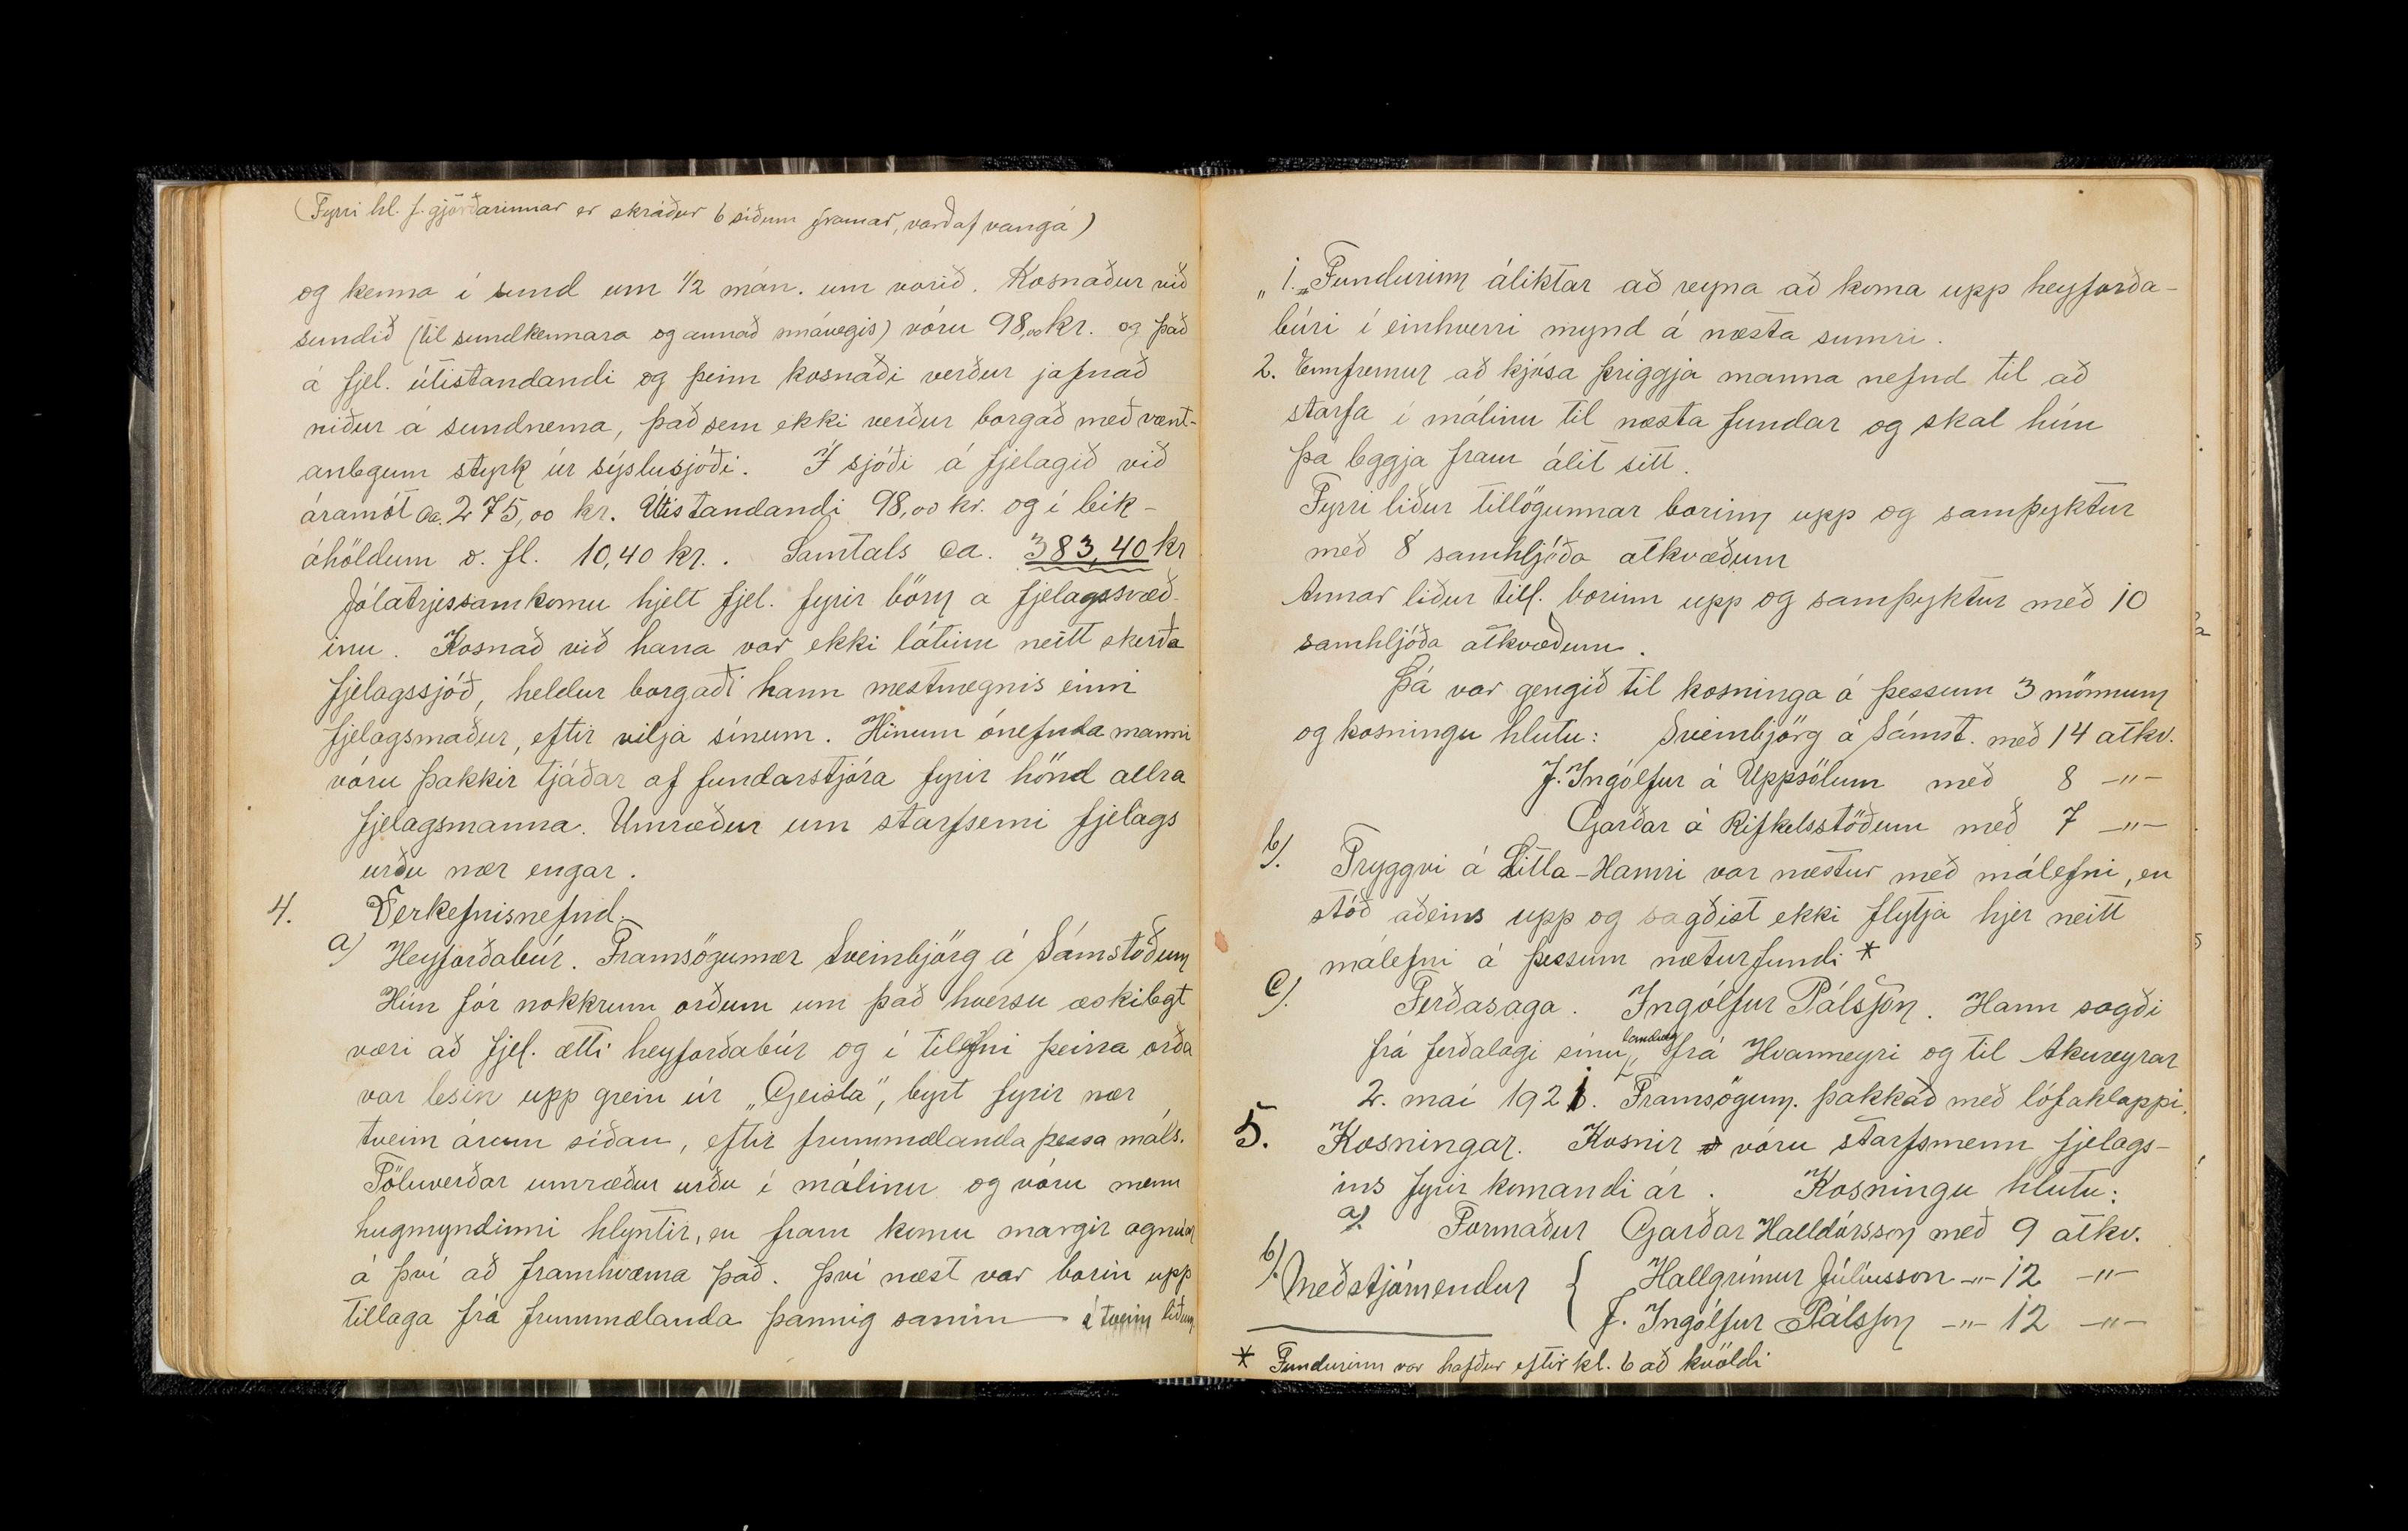 (Fyrri hl. f.gjörðarinnar er skráður 6 síðum framar, varð af vangá)
og kenna í sund um 1/2 mán. um vorið. Kosnaður við
sundið (til sundkennara og annað smávegis) vóru 98,00 kr. og það
á fjel. útistandandi og þeim kosnaði verður jafnað
niður á sundnema, það sem ekki verður borgað með vænt-
anlegum styrk úr sýslusjóði. Í sjóði á fjelagið við
áramót ca. 275,00 kr. Útistandandi 98,00 kr. og í leik-
áhöldum o. fl. 10,40 kr.. Samtals ca. 383,40 kr
Jólatrjessamkomu hjelt fjel. fyrir börn a fjelagssvæð-
inu. Kosnað við hana var ekki látinn neitt skerða
fjelagssjóð, heldur borgaði hann mestmegnis einn
fjelagsmaður, eftir vilja sínum. Hinum ónefnda manni
vóru þakkir tjáðar af fundarstjóra fyrir hönd allra
fjelagsmanna. Umræður um starfsemi fjelags
urðu nær engar.
4. Verkefnisnefnd.
a) Heyforðabúr. Framsögumær Sveinbjörg á Sámstöðum
Hún fór nokkrum orðum um það hversu æskilegt
væri að fjel. ætti heyforðabúr og í tilefni þeirra orða
var lesin upp grein úr „Geisla", byrt fyrir nær
tveim árum síðan, eftir frummælanda þessa máls.
Töluverðar umræður urðu í málinu og vóru menn
hugmyndinni hlyntir, en fram komu margir agnúar
á því að framkvæma það. Því næst var borin upp
tillaga frá frummælanda þannig samin — í tveim liðum
„1. „Fundurinn áliktar að reyna að koma upp heyforða-
búri í einhverri mynd á næsta sumri.
2. Ennfremur að kjósa þriggja manna nefnd til að
starfa í málinu til næsta fundar og skal hún
þa leggja fram álit sitt.
Fyrri liður tillögunnar borinn upp og samþyktur
með 8 samhljóða atkvæðum
Annar liður till. borinn upp og samþyktur með 10
samhljóða atkvæðum.
Þá var gengið til kosninga á þessum 3 mönnum
og kosningu hlutu: Sveinbjörg á Sámst. með 14 atkv.
J. Ingólfur á Uppsölum með 8 —"—
Garðar á Rifkelsstöðum með 7 —"—
b). Tryggvi á Litla-Hamri var næstur með málefni, en
stóð aðeins upp og sagðist ekki flytja hjer neitt
málefni á þessum næturfundi *
c). Ferðasaga. Ingólfur Pálsson. Hann sagði
frá ferðalagi sínu landveg frá Hvanneyri og til Akureyrar
2. maí 1921. Framsögum. þakkað með lófaklappi.
5. Kosningar. Kosnir vóru starfsmenn fjelags-
ins fyrir komandi ár. Kosningu hlutu:
a). Formaður Garðar Halldórsson með 9 atkv.
b). Meðstjórnendur { Hallgrímur Júlíusson —"— 12 —"—
J. Ingólfur Pálsson —"— 12 —"—
* Fundurinn var hafður eftir kl. 6 að kvöldi